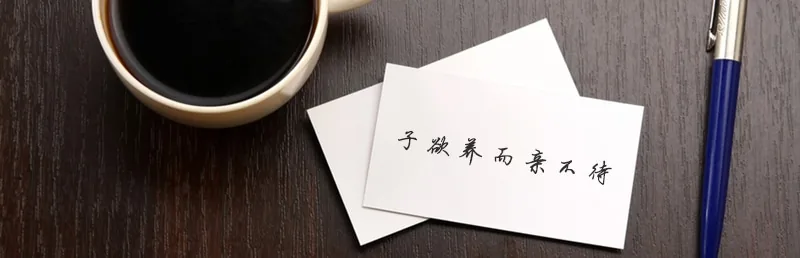 子欲养而亲不待